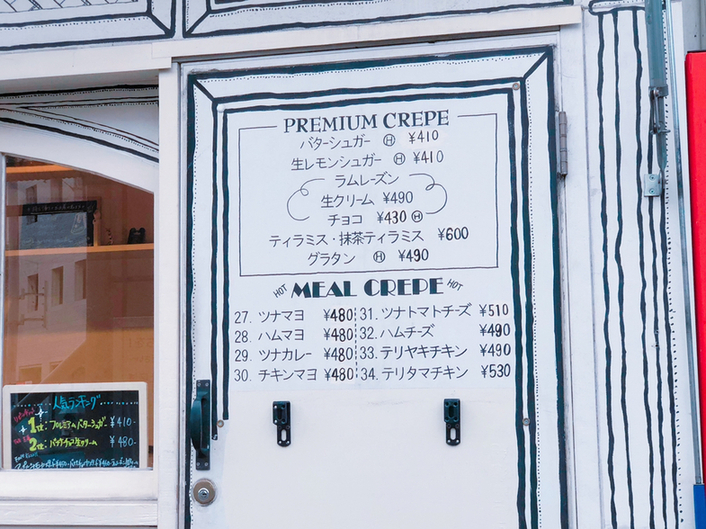 PREMIUM CREPE
バターシュガー Ⓗ ¥410
生レモンシュガー Ⓗ ¥410
ラムレーズン
生クリーム ¥490
チョコ ¥430 Ⓗ
ティラミス・抹茶ティラミス ¥600
グラタン Ⓗ ¥490
HOT MEAL CREPE HOT
27. ツナマヨ ¥480
28. ハムマヨ ¥480
29. ツナカレー ¥480
30. チキンマヨ ¥480
31. ツナトマトチーズ ¥510
32. ハムチーズ ¥490
33. テリヤキチキン ¥490
34. テリタマチキン ¥530
人気ランキング
1位:プレミアムバターシュガー ¥410-
2位:バナナチョコ生クリーム ¥480-